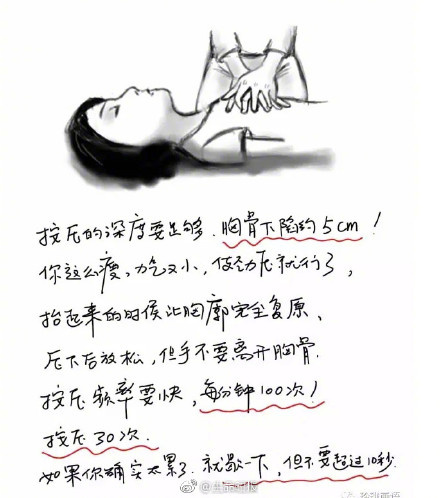 按压的深度要足够.胸骨下陷约5cm!
你这么瘦,力气又小,使劲压就行了,
抬起来的时候让胸廓完全复原、
压下后放松,但手不要离开胸骨.
按压频率要快,每分钟100次!
按压30次.
如果你确实太累了.就歇一下,但不要超过10秒.